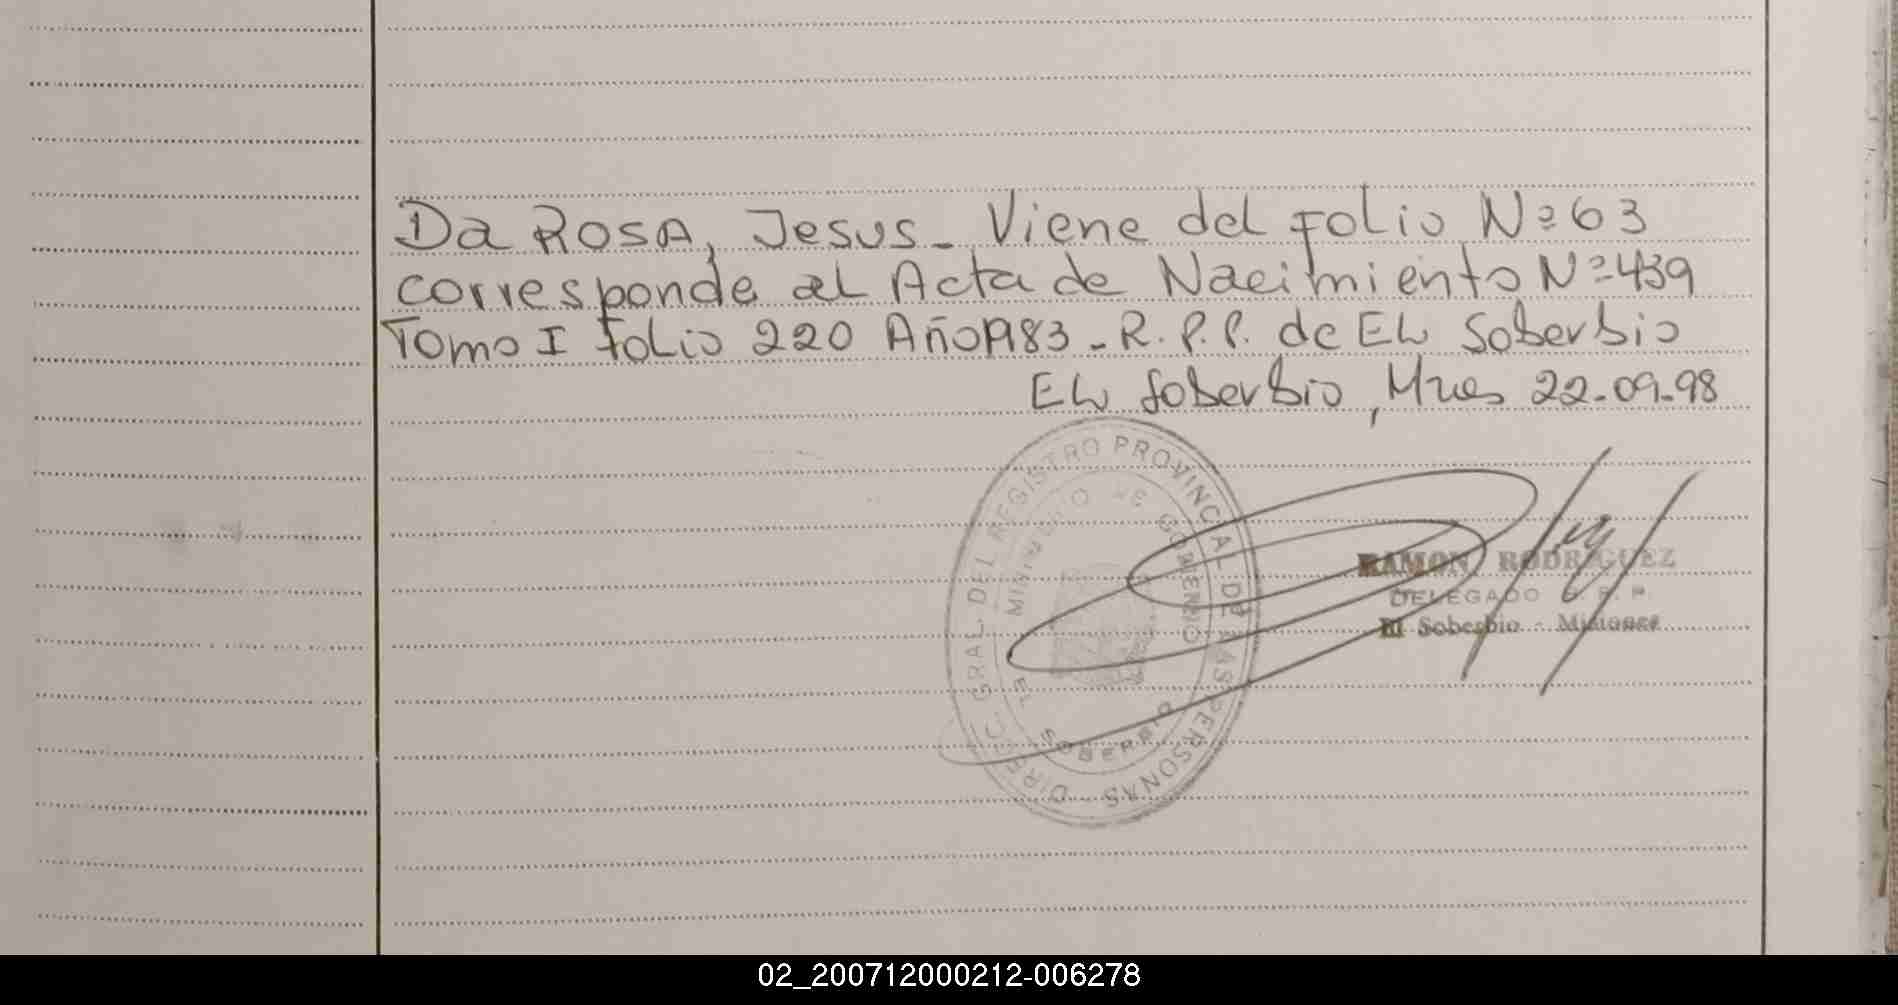 Da Rosa, Jesus - Viene del Folio Nº 63
corresponde al Acta de Nacimiento Nº 439
Tomo I Folio 220 Año 1983 - R.P.P. de El Soberbio
El Soberbio, Mnes 22-09-98
DIREC. GRAL. DEL REGISTRO PROVINCIAL DE LAS PERSONAS
MINISTERIO DE GOBIERNO
EL SOBERBIO
RAMON RODRIGUEZ
DELEGADO R. P. P.
El Soberbio - Misiones
02_200712000212-006278